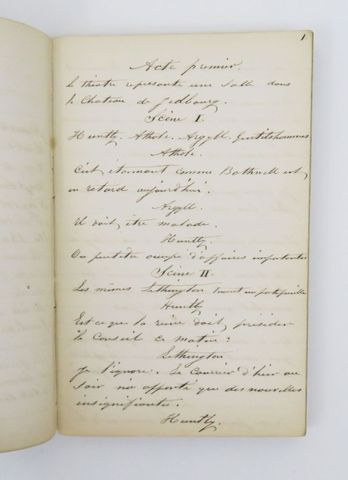 1
Acte premier.
Le théatre représente une Salle dans
le Chateau de Jedbourg.
Scène I.
Huntly. Athole. Argyll. Gentilshommes
Athole.
C'est étonnant comme Bothwell est
en retard aujourd'hui.
Argyll.
Il doit être malade.
Huntly.
Ou peutêtre occupé d'affaires importantes
Scène II.
Les mêmes Lethington tenant un portefeuille
Huntly
Est-ce que la reine doit présider
le Conseil ce matin?
Lethington
Je l'ignore. Le Courrier d'hier au
soir n'a apporté que des nouvelles
insignifiantes.
Huntly.